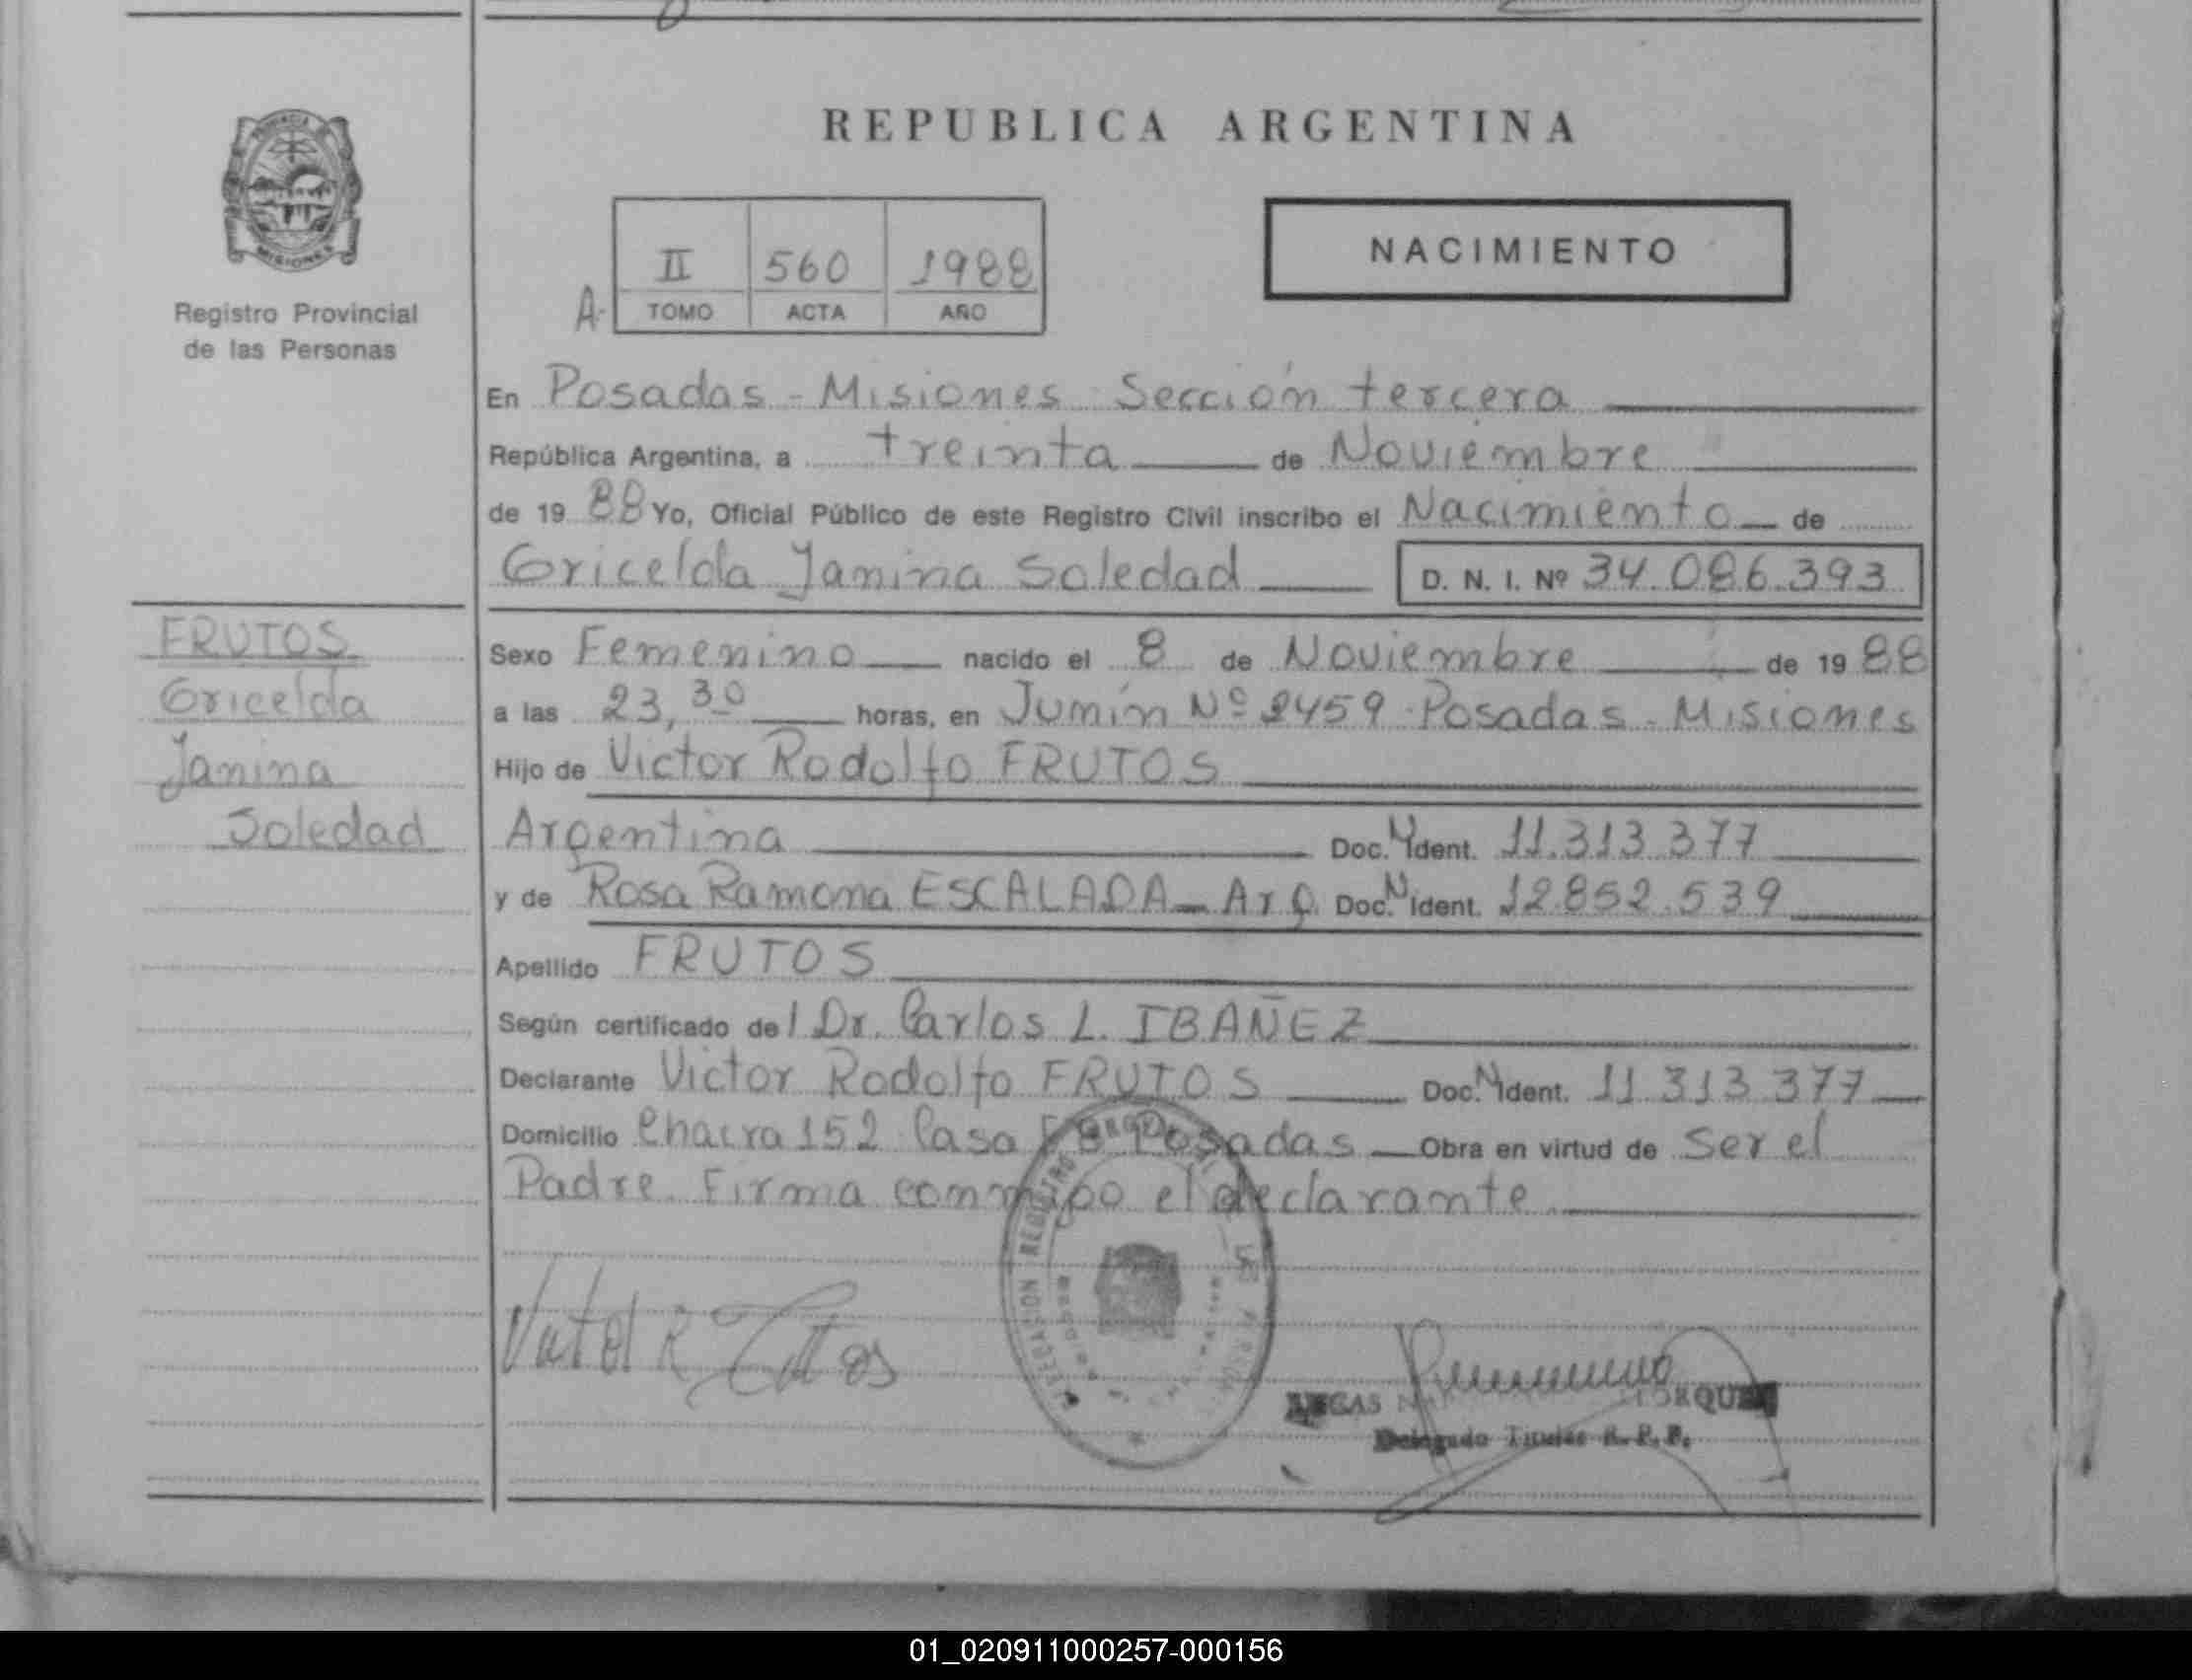 REPUBLICA ARGENTINA
PROVINCIA DE
MISIONES
Registro Provincial
de las Personas
A-
II 560 1988
TOMO ACTA AÑO
NACIMIENTO
En Posadas - Misiones Sección tercera
República Argentina, a treinta de Noviembre
de 19 88 Yo, Oficial Público de este Registro Civil inscribo el Nacimiento de
Gricelda Janina Soledad D. N. I. Nº 34.086.393
FRUTOS
Gricelda
Janina
Soledad
Sexo Femenino nacido el 8 de Noviembre de 19 88
a las 23,30 horas, en Junín Nº 2459 Posadas - Misiones
Hijo de Victor Rodolfo FRUTOS
Argentina Doc. N Ident. 11.313.377
y de Rosa Ramona ESCALADA - Arg. Doc. N Ident. 12.852.539
Apellido FRUTOS
Según certificado del Dr. Carlos L. IBAÑEZ
Declarante Victor Rodolfo FRUTOS Doc. N Ident. 11.313.377
Domicilio Chacra 152 Casa Posadas Obra en virtud de Ser el
Padre. Firma conmigo el declarante.
Delegado Titular R. P. P.
01_020911000257-000156